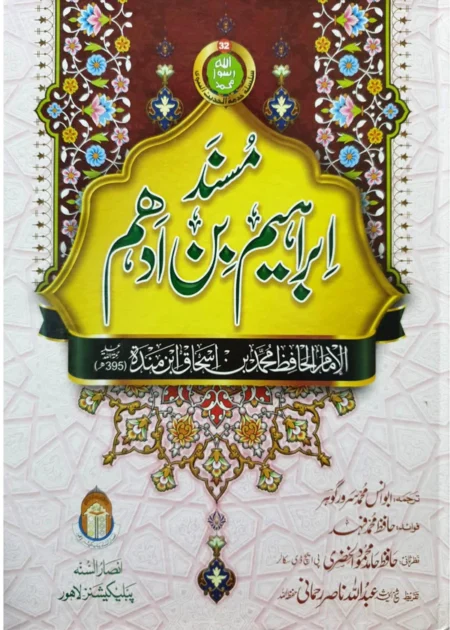 32
اللہ
رسول
محمد
سلسلۃ خدمۃ الحدیث النبوی
مُسند
ابراہیم بن ادھم
الامام الحافظ محمد بن اسحاق ابن مندہ رحمۃ اللہ علیہ (395ھ)
ترجمہ: ابو انس محمد سرور گوہر
فوائد: حافظ محمد فہد
نظر ثانی: حافظ حامد محمود الخضری پی ایچ ڈی سکالر
تقریظ: شیخ الحدیث عبداللہ ناصر رحمانی حفظہ اللہ
انصار السنہ
پبلیکیشنز لاہور